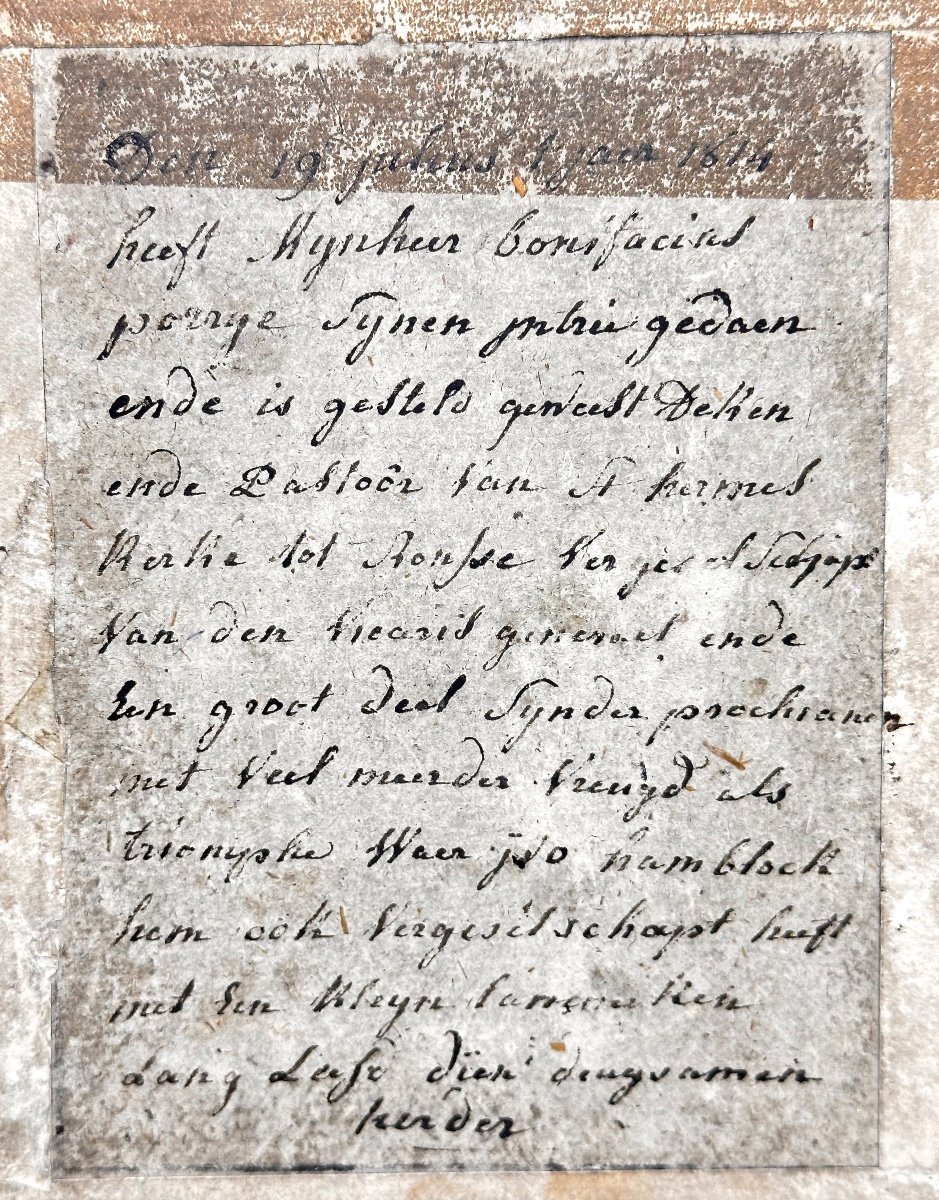 Den 19 julius t jaer 1814
heeft Mynheer bonifacius
porrye Synen jntrii gedaen
ende is gesteld geweest Deken
ende Pastoôr van St hermes
Kerke tot Ronsse ver geselschapt
van den vicaris generael ende
Een groot deel Synder prochianen
met veel meerder vreugd als
triomphe Waer jvo hamblock
hem ook vergeselschapt heeft
met Een Kleyn lammeken
Lang Leefd dïen deugsamen
herder